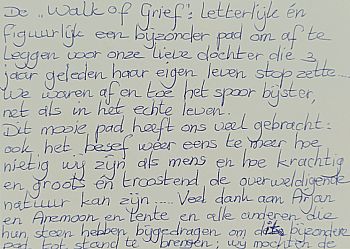 De „Walk of Grief": letterlijk én
figuurlijk een bijzonder pad om af te
leggen voor onze lieve dochter die 3
jaar geleden haar eigen leven stop zette...
We waren af en toe het spoor bijster,
net als in het echte leven.
Dit mooie pad heeft ons veel gebracht:
ook het besef weer eens te meer hoe
nietig wij zijn als mens en hoe krachtig
en groots en troostend de overweldigende
natuur kan zijn ..... Veel dank aan Arjan
en Anemoon en Tente en alle anderen die
hun steen hebben bijgedragen om dit bijzondere
pad tot stand te brengen; wij mochten de